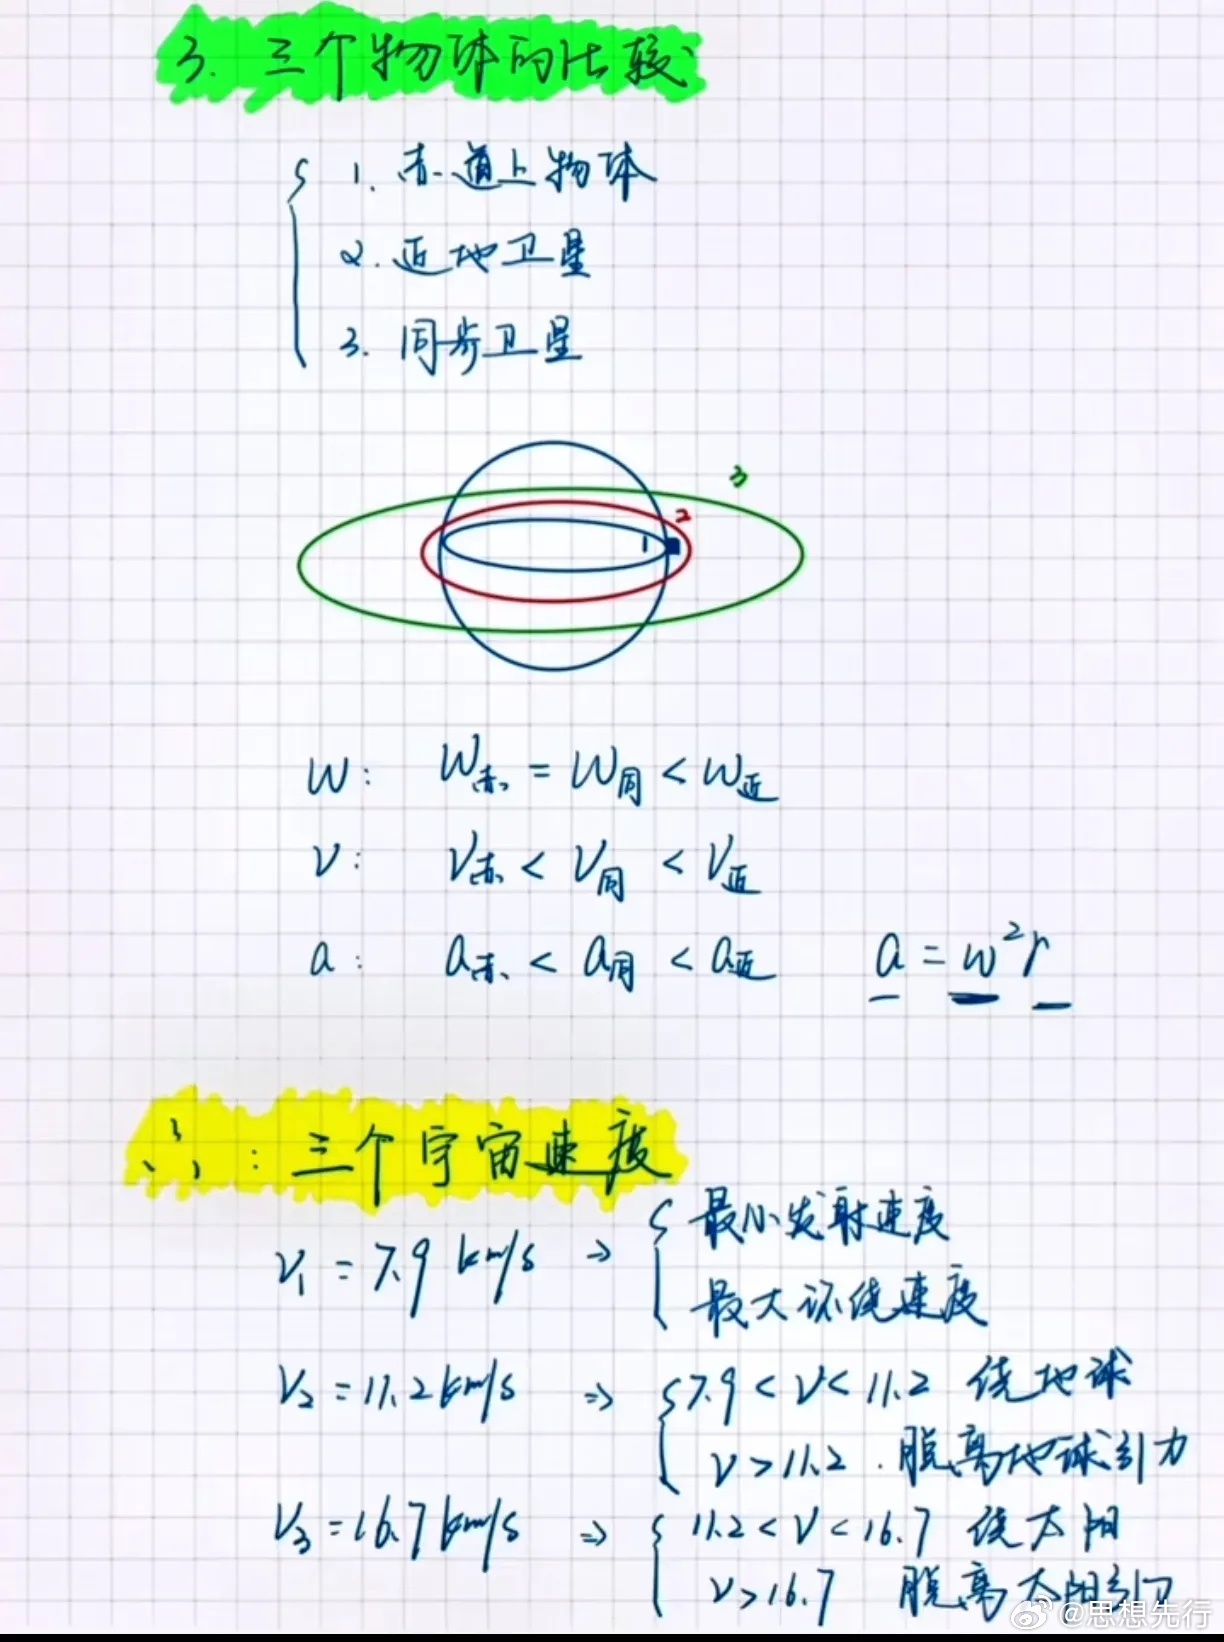 3. 三个物体的比较
1. 赤道上物体
2. 近地卫星
3. 同步卫星
3
2
1
w: w赤 = w同 < w近
v: v赤 < v同 < v近
a: a赤 < a同 < a近 a = w²r
三个宇宙速度
v₁ = 7.9 km/s ⇒ 最小发射速度
最大环绕速度
v₂ = 11.2 km/s ⇒ 7.9 < v < 11.2 绕地球
v > 11.2 . 脱离地球引力
v₃ = 16.7 km/s ⇒ 11.2 < v < 16.7 绕太阳
v > 16.7 脱离太阳引力
@思想先行